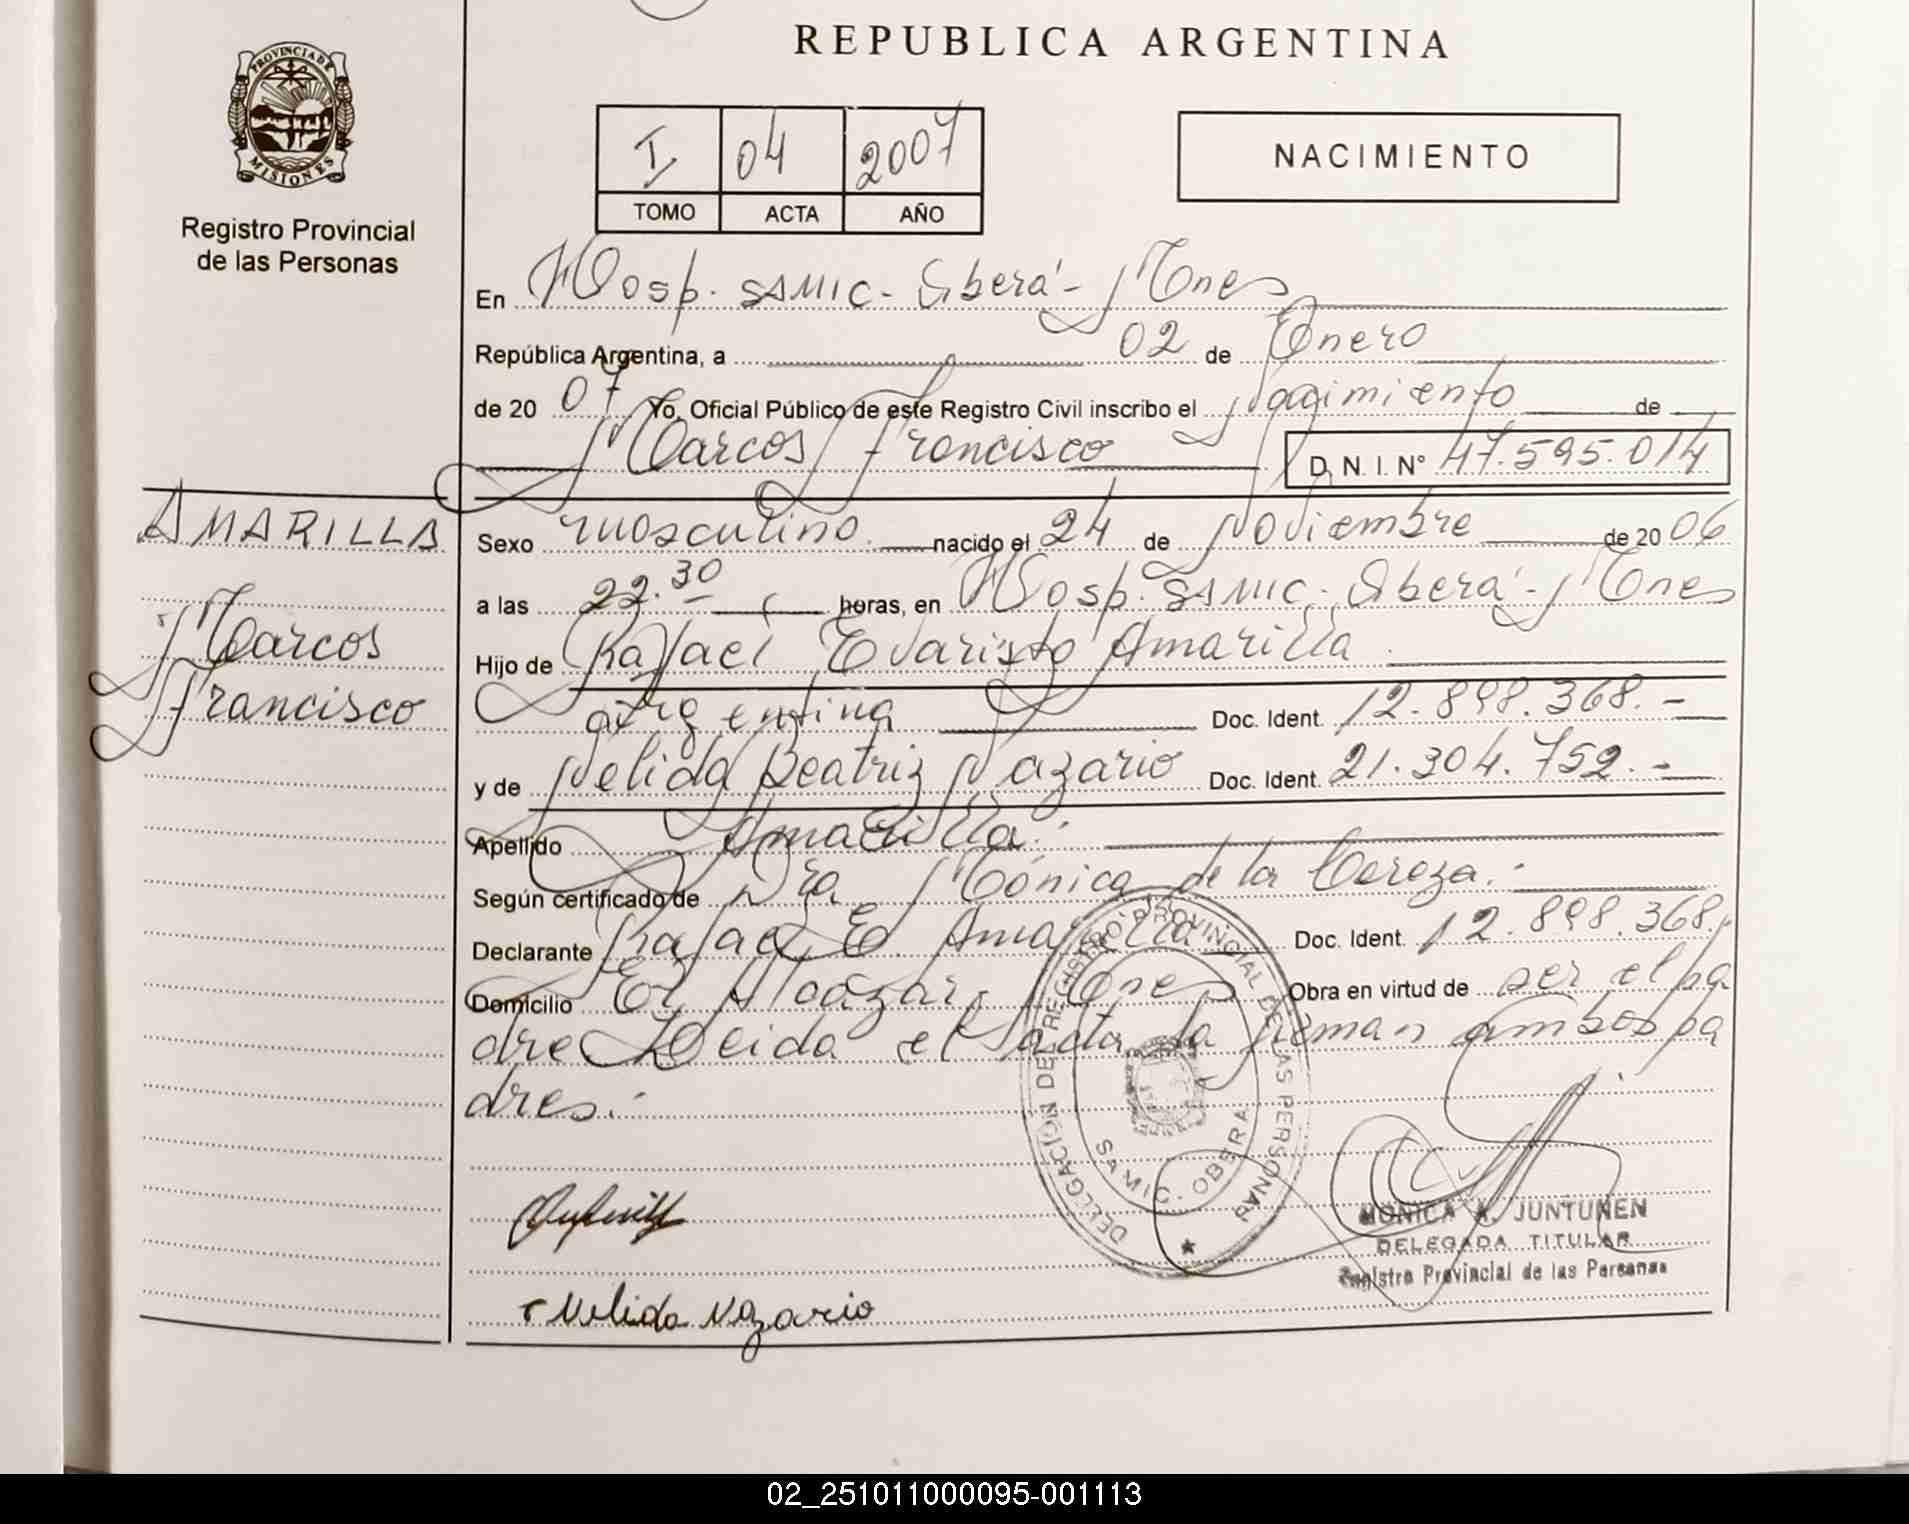 REPUBLICA ARGENTINA
PROVINCIA DE MISIONES
Registro Provincial
de las Personas
I 04 2007
TOMO ACTA AÑO
NACIMIENTO
En Hosp. SAMIC - Oberá - Mnes
República Argentina, a 02 de Enero
de 20 07 Yo, Oficial Público de este Registro Civil inscribo el Nacimiento de
Marcos Francisco D. N. I. N° 47.595.014
AMARILLA
Marcos
Francisco
Sexo masculino nacido el 24 de Noviembre de 20 06
a las 22.30 horas, en Hosp. SAMIC - Oberá - Mnes
Hijo de Rafael Evaristo Amarilla
argentina Doc. Ident. 12.898.368.-
y de Nelida Beatriz Nazario Doc. Ident. 21.304.752.-
Apellido Amarilla.-
Según certificado de Dra Mónica de la Ceroza.-
Declarante Rafael E. Amarilla Doc. Ident. 12.898.368.-
Domicilio El Alcázar - Mnes Obra en virtud de ser el pa
dre Leida el acta la firman ambos pa
dres.-
DELEGACION DEL REGISTRO PROVINCIAL DE LAS PERSONAS
SAMIC - OBERA
MONICA A. JUNTUNEN
DELEGADA TITULAR
Registro Provincial de las Personas
Nelida Nazario
02_251011000095-001113